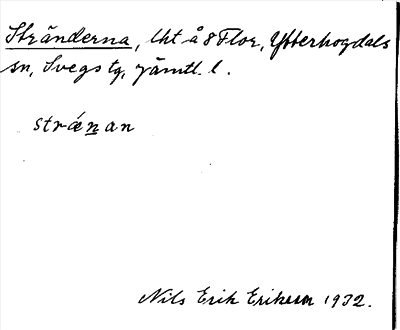 Stränderna, lht å 8 Flor, Ytterhogdals
sn, Svegs tg, Jämtl. l.
strǽnan
Nils Erik Erikson 1932.